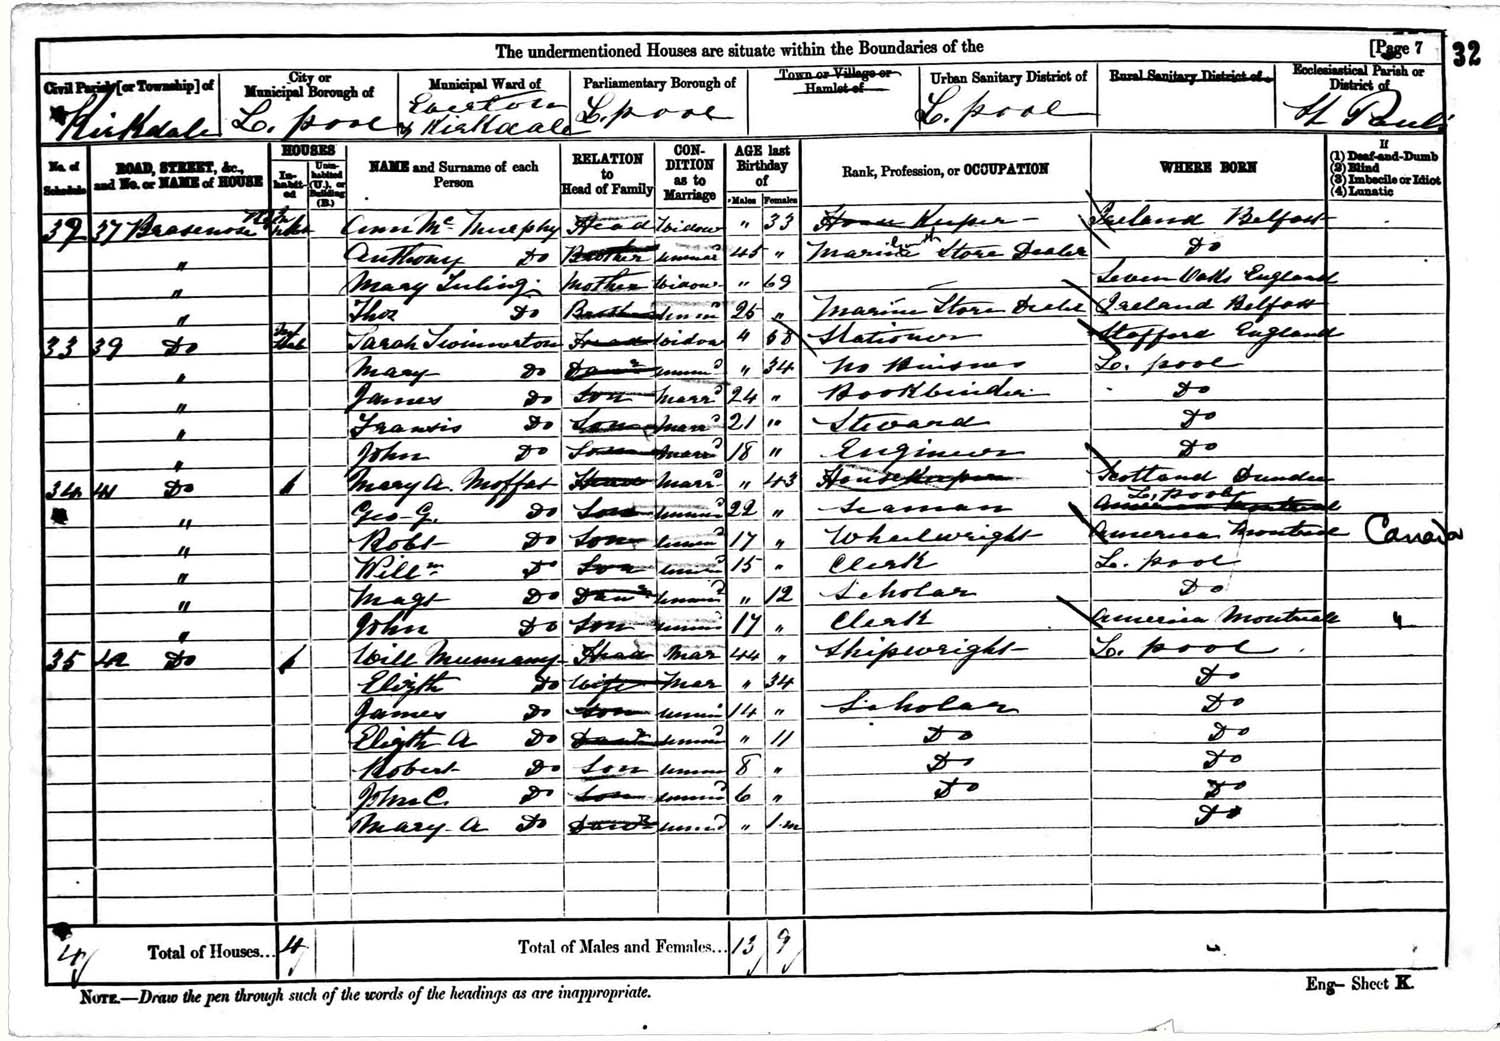 The undermentioned Houses are situate within the Boundaries of the [Page 7 32
Civil Parish [or Township] of City or Municipal Borough of Municipal Ward of Parliamentary Borough of Town or Village or Hamlet of Urban Sanitary District of Rural Sanitary District of Ecclesiastical Parish or District of
Kirkdale L. pool Everton & Kirkdale L. pool L. pool St Pauls
No. of Schedule ROAD, STREET, &c., and No. or NAME of HOUSE HOUSES Inhabited Uninhabited (U.), or Building (B.) NAME and Surname of each Person RELATION to Head of Family CONDITION as to Marriage AGE last Birthday of Males Females Rank, Profession, or OCCUPATION WHERE BORN If (1) Deaf-and-Dumb (2) Blind (3) Imbecile or Idiot (4) Lunatic
32 37 Brasenose Ann Mc Murphy Head Widow " 33 House Keeper Ireland Belfast
" Anthony Do Brother 45 " Marine Store Dealer Do
" Mary Mother Widow " 69 Seven Oaks England
" Thos Do Brother 25 " Marine Store Dealer Ireland Belfast
33 39 Do Sarah Swinnerton Head Widow " 68 Stationer Stafford England
" Mary Do Daur " 34 No Buisness L. pool
" James Do Son Marrd 24 " Bookbinder Do
" Fransis Do Son Marrd 21 " Steward Do
" John Do Son Marrd 18 " Engineer Do
34 41 Do 1 Mary A. Moffat Head Marrd " 43 House Keeper Scotland Dundee
" Geo G. Do Son 22 " Seaman America Montreal L. pool
" Robt Do Son 17 " Wheelwright America Montreal Canada
" Willm Do Son 15 " Clerk L. pool
" Magt Do Daur " 12 Scholar Do
" John Do Son 17 " Clerk America Montreal "
35 42 Do 1 Will Head Mar 44 " Shipwright L. pool
Elizth Do Wife Mar " 34 Do
James Do Son 14 " Scholar Do
Elizth A Do " 11 Do Do
Robert Do Son 8 " Do Do
John C. Do Son 6 " Do Do
Mary A Do Daur " 1 m Do
4 Total of Houses... 4 Total of Males and Females... 13 9
NOTE.—Draw the pen through such of the words of the headings as are inappropriate.
Eng— Sheet K.